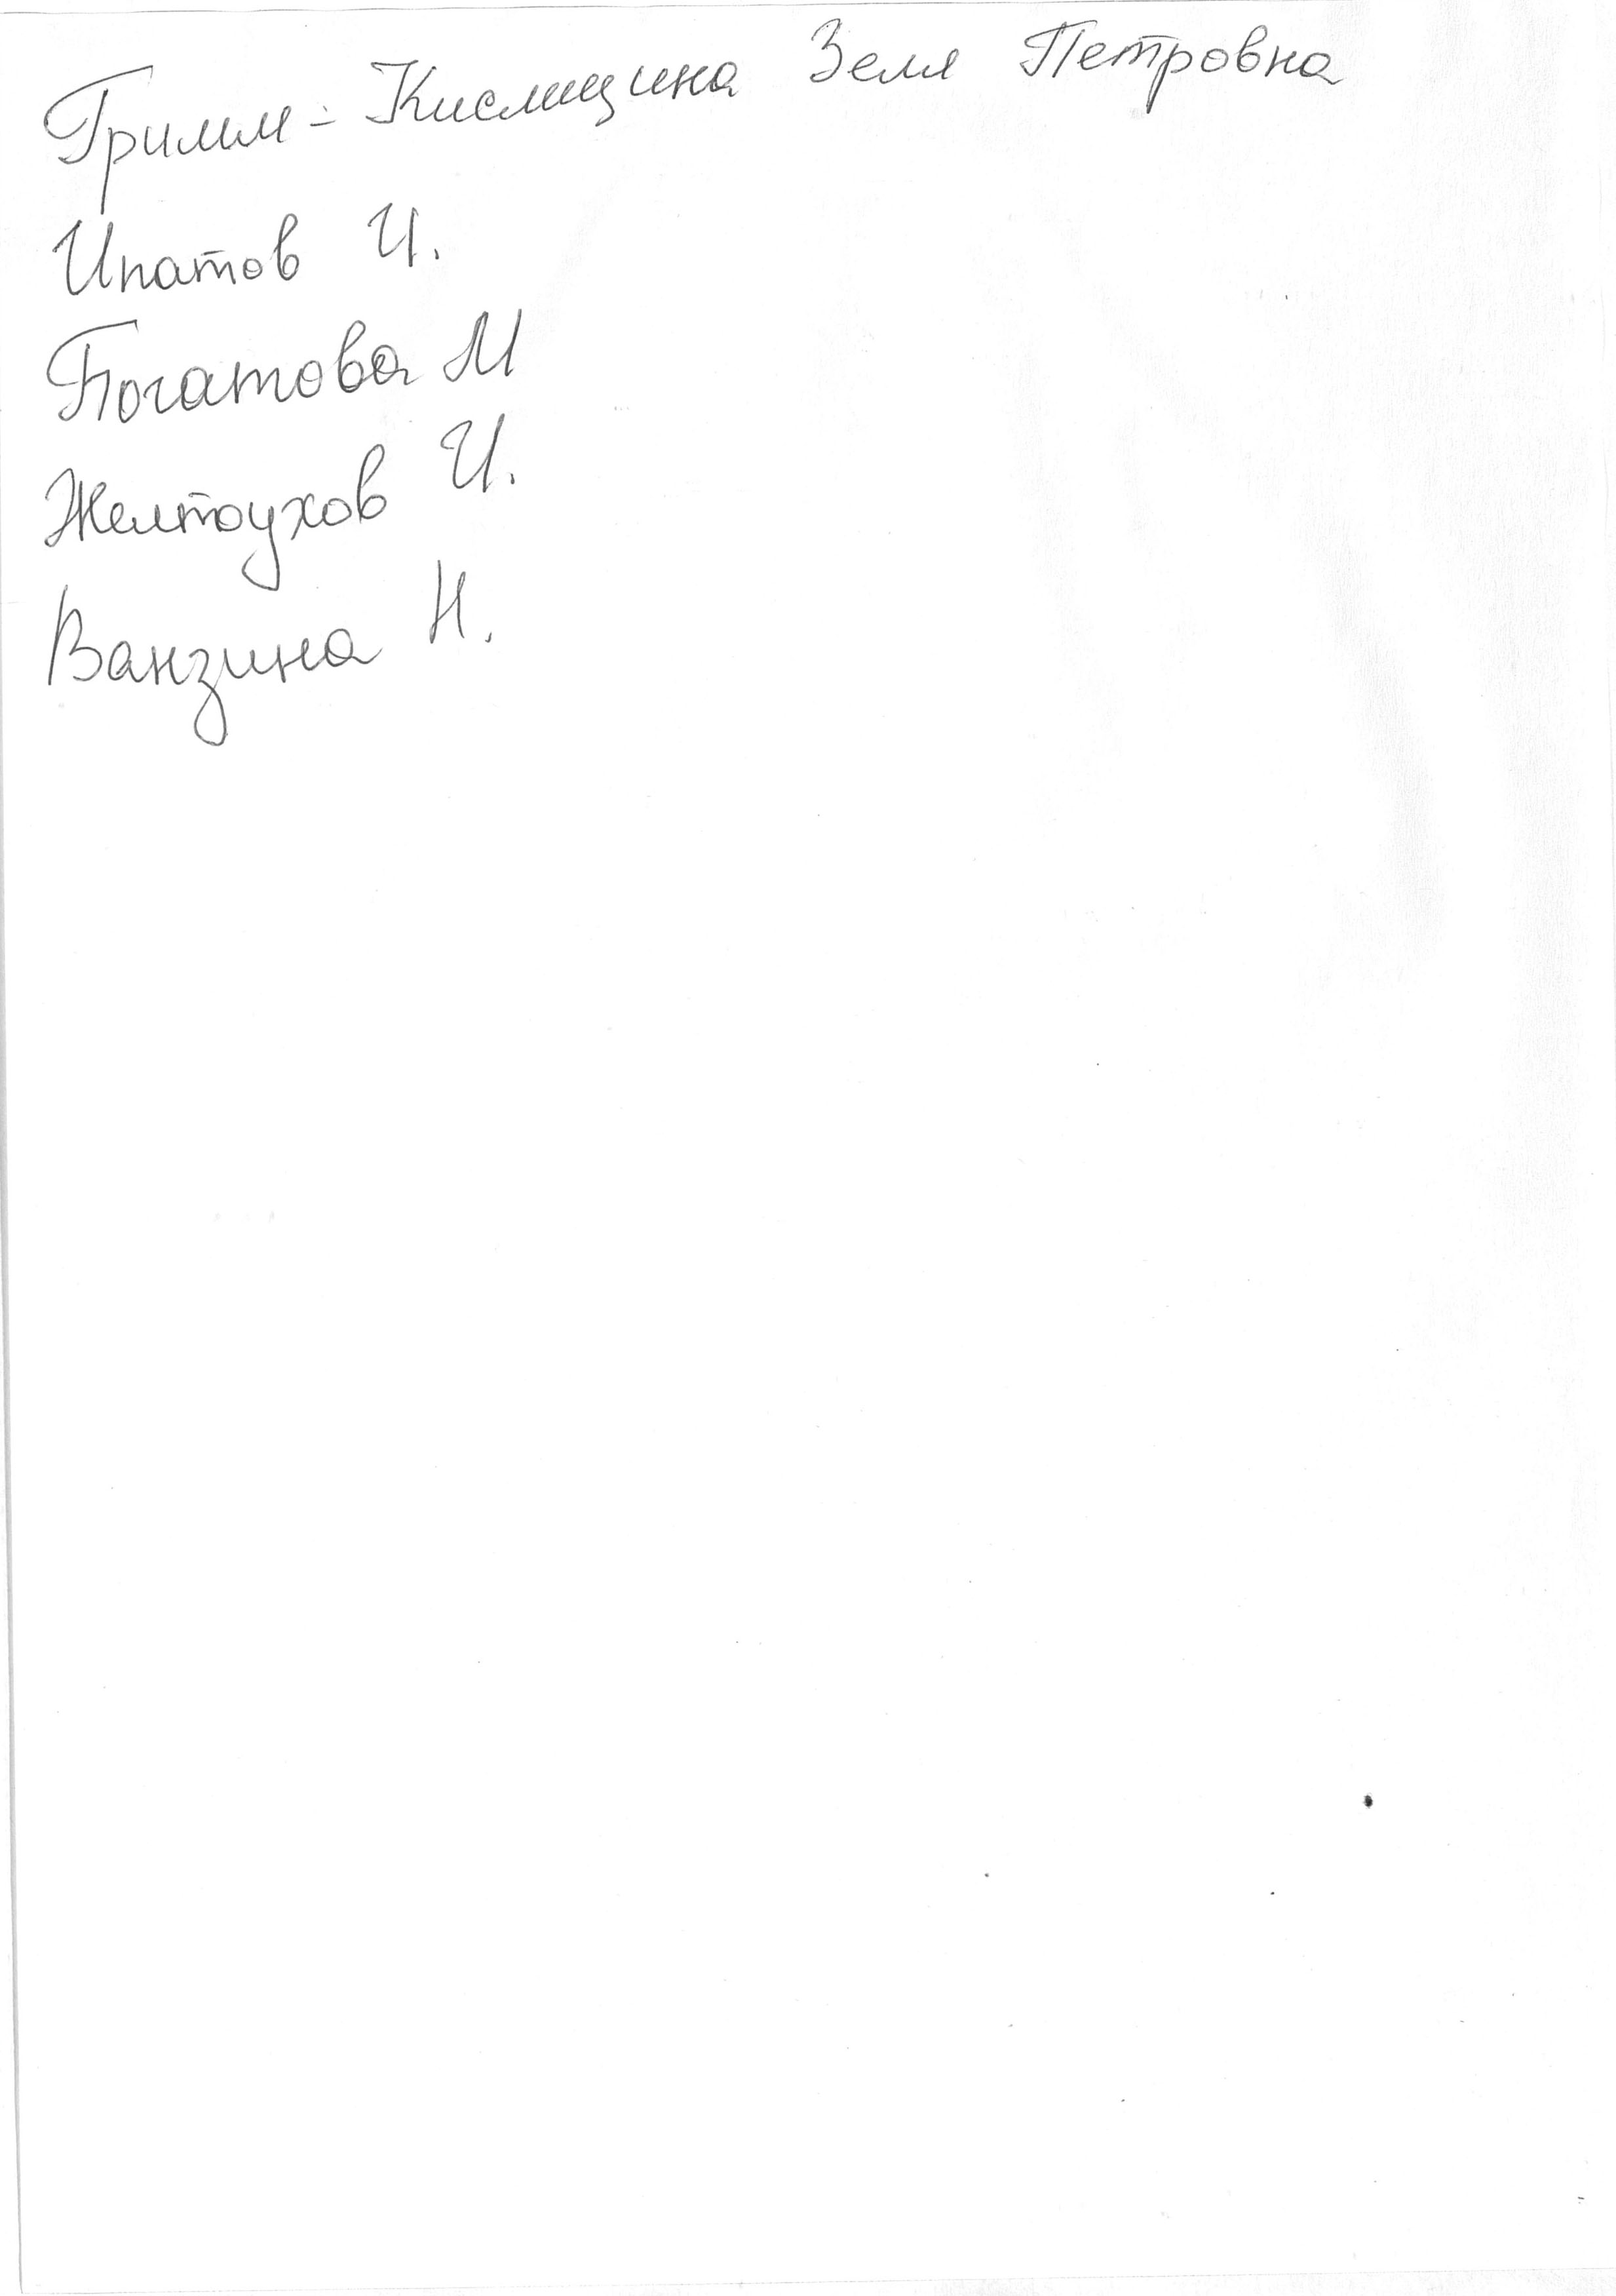 Гримм-Кислицина Зеля Петровна
Ипатов И.
Богатова М
Желтоухов И.
Ванзина Н.